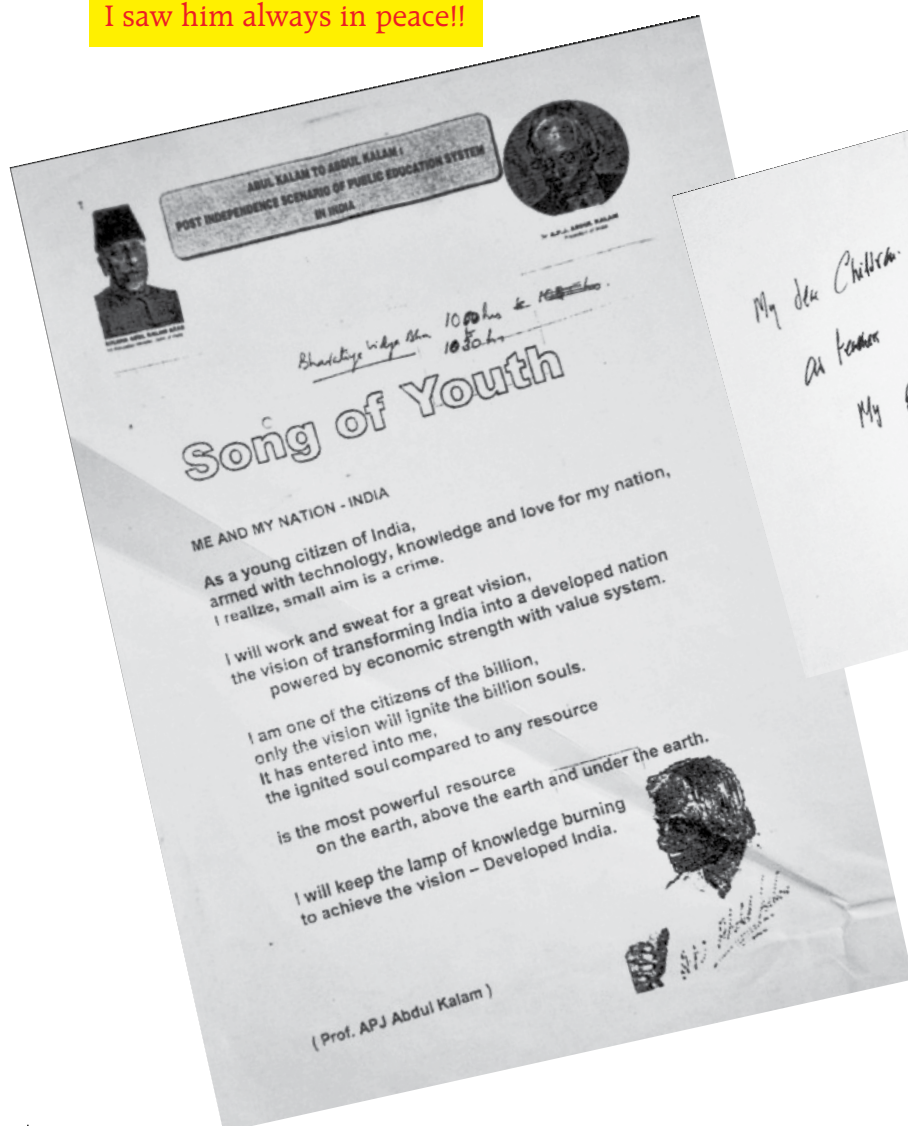 I saw him always in peace!!
ABUL KALAM TO ABDUL KALAM :
POST INDEPENDENCE SCENARIO OF PUBLIC EDUCATION SYSTEM
IN INDIA
Dr. A.P.J. ABDUL KALAM
President of India
MAULANA ABUL KALAM AZAD
Bharatiya Vidya Bha 1000 hrs &
to
1030 hr
Song of Youth
ME AND MY NATION - INDIA
As a young citizen of India,
armed with technology, knowledge and love for my nation,
I realize, small aim is a crime.
I will work and sweat for a great vision,
the vision of transforming India into a developed nation
powered by economic strength with value system.
I am one of the citizens of the billion,
only the vision will ignite the billion souls.
It has entered into me,
the ignited soul compared to any resource
is the most powerful resource
on the earth, above the earth and under the earth.
I will keep the lamp of knowledge burning
to achieve the vision – Developed India.
( Prof. APJ Abdul Kalam )
My dear Children.
as teacher
My